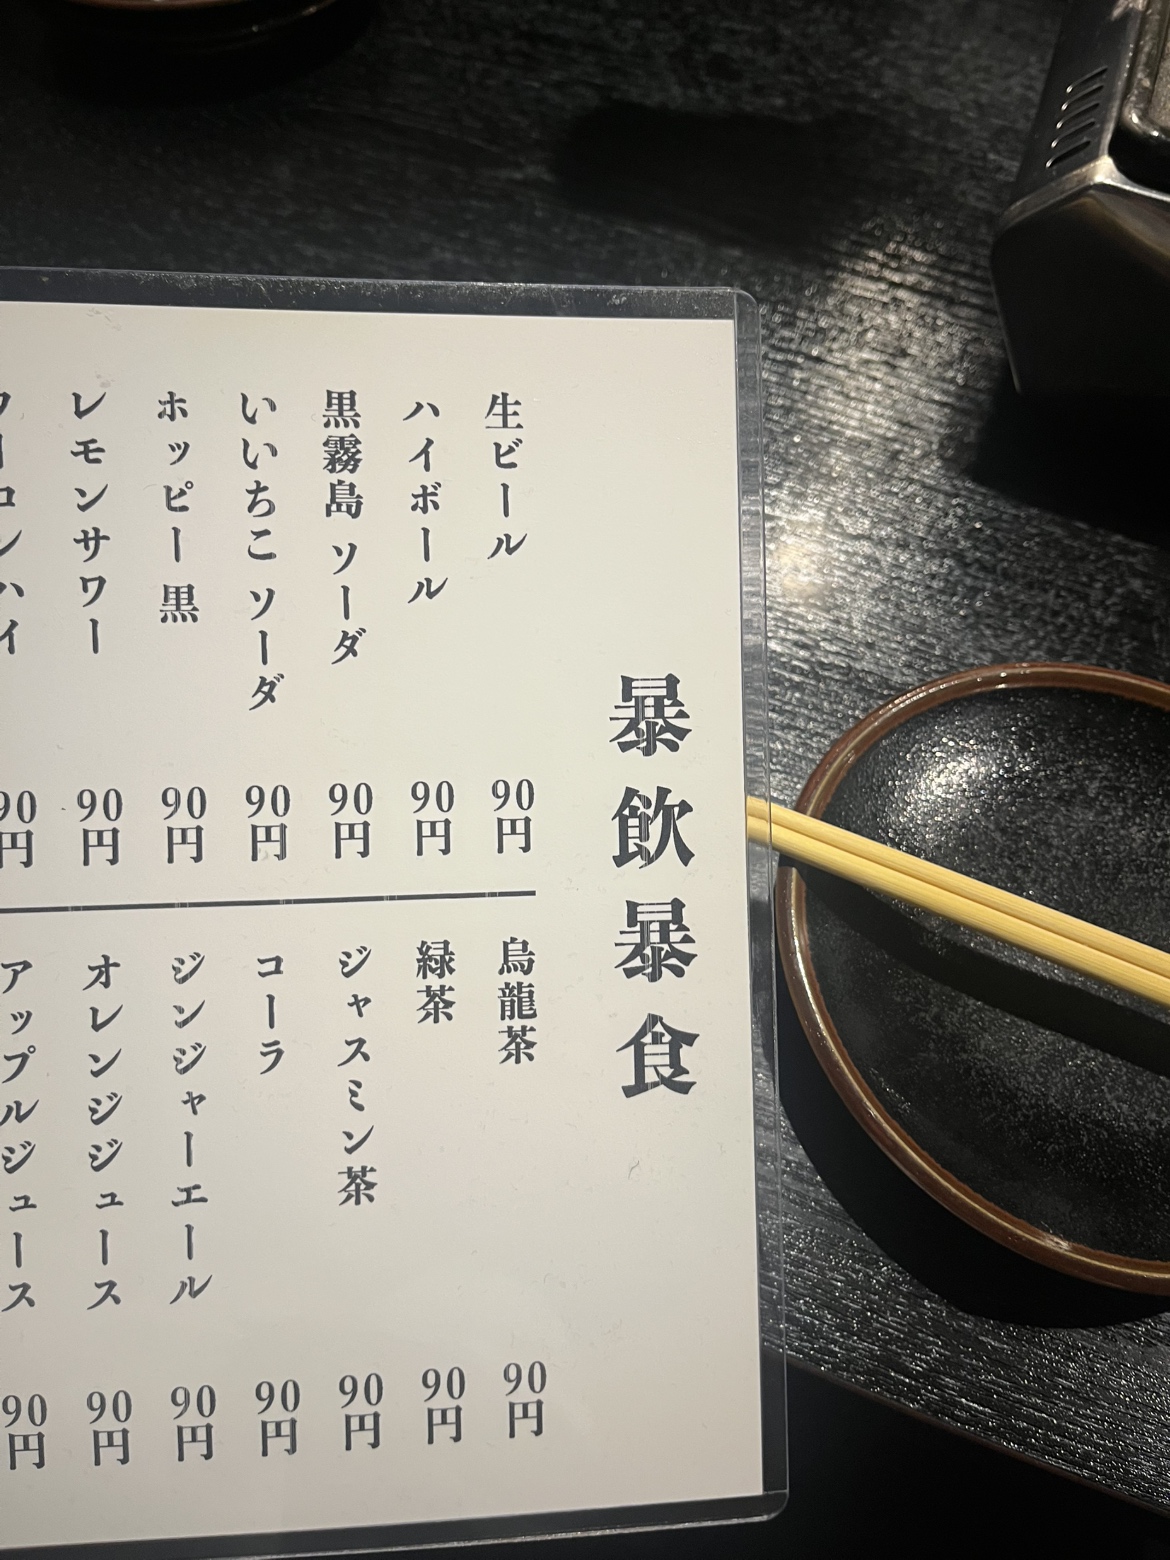 暴飲暴食
生ビール 90円
ハイボール 90円
黒霧島 ソーダ 90円
いいちこ ソーダ 90円
ホッピー 黒 90円
レモンサワー 90円
ウーロンハイ 90円
烏龍茶 90円
緑茶 90円
ジャスミン茶 90円
コーラ 90円
ジンジャーエール 90円
オレンジジュース 90円
アップルジュース 90円